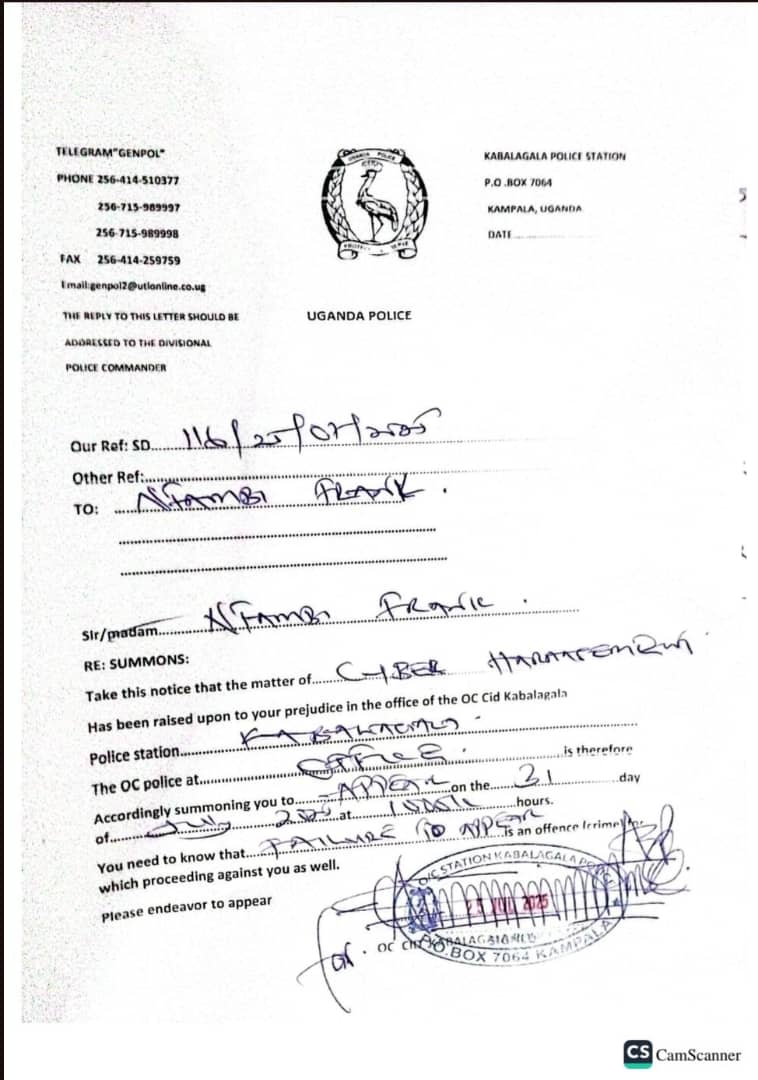 TELEGRAM"GENPOL"
PHONE 256-414-510377
256-715-989997
256-715-989998
FAX 256-414-259759
Email:genpol2@utlonline.co.ug
THE REPLY TO THIS LETTER SHOULD BE
ADDRESSED TO THE DIVISIONAL
POLICE COMMANDER
UGANDA POLICE
KABALAGALA POLICE STATION
P.O .BOX 7064
KAMPALA, UGANDA
DATE................
UGANDA POLICE
Our Ref: SD.....116/25/07/2025
Other Ref:..........
TO: NTAMBI FRANK.
Sir/madam....NTAMBI FRANK.
RE: SUMMONS:
Take this notice that the matter of......CYBER
Has been raised upon to your prejudice in the office of the OC Cid Kabalagala
Police station....KABALAGALA
The OC police at......OFFICE. is therefore
Accordingly summoning you to....APPEAR....on the....31....day
of....July 2025 at hours.
You need to know that....FAILURE TO APPEAR is an offence
which proceeding against you as well.
Please endeavor to appear
for. OC
STATION KABALAGALA
25 2025
P.O.BOX 7064 KAMPALA
CS CamScanner